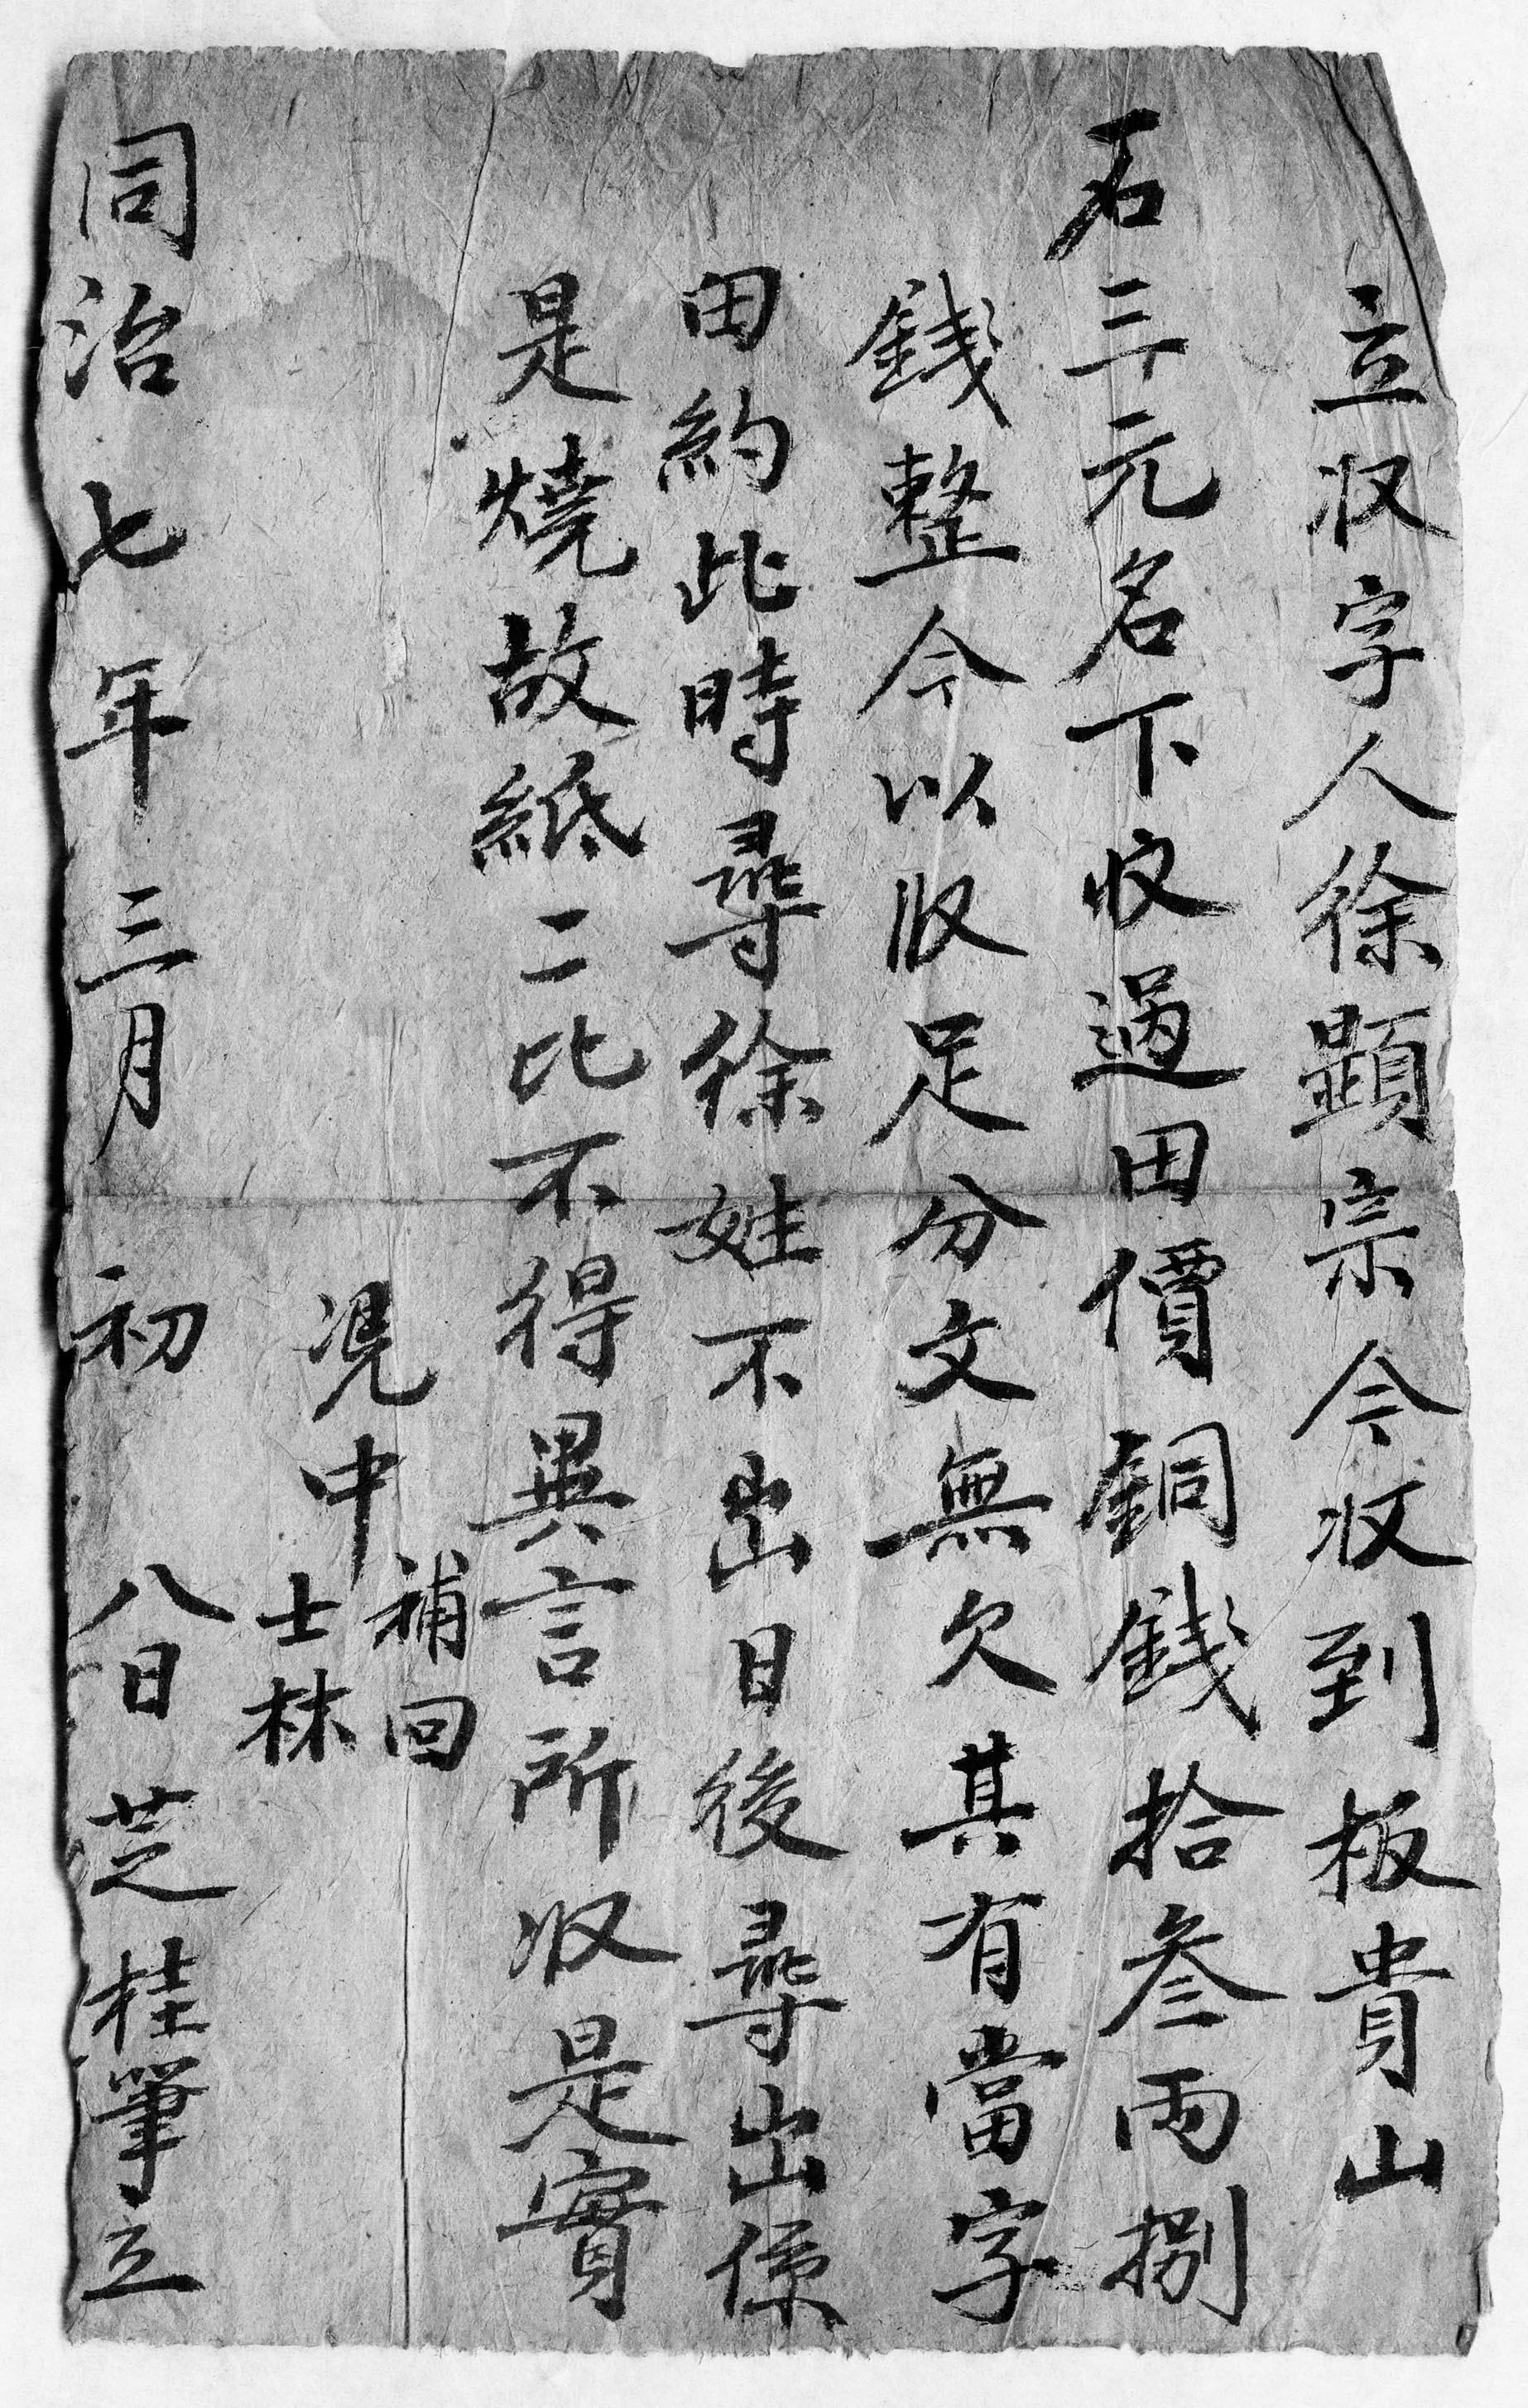 立收字人徐顯宗今收到板貴山
石三元名下收過田價銅錢拾叁両捌
錢整今以收足分文無欠其有當字
田約此時尋徐姓不出日後尋出係
是燒故紙二比不得異言所收是實
補回
凴中
士林
同治七年三月初八日芝桂筆立